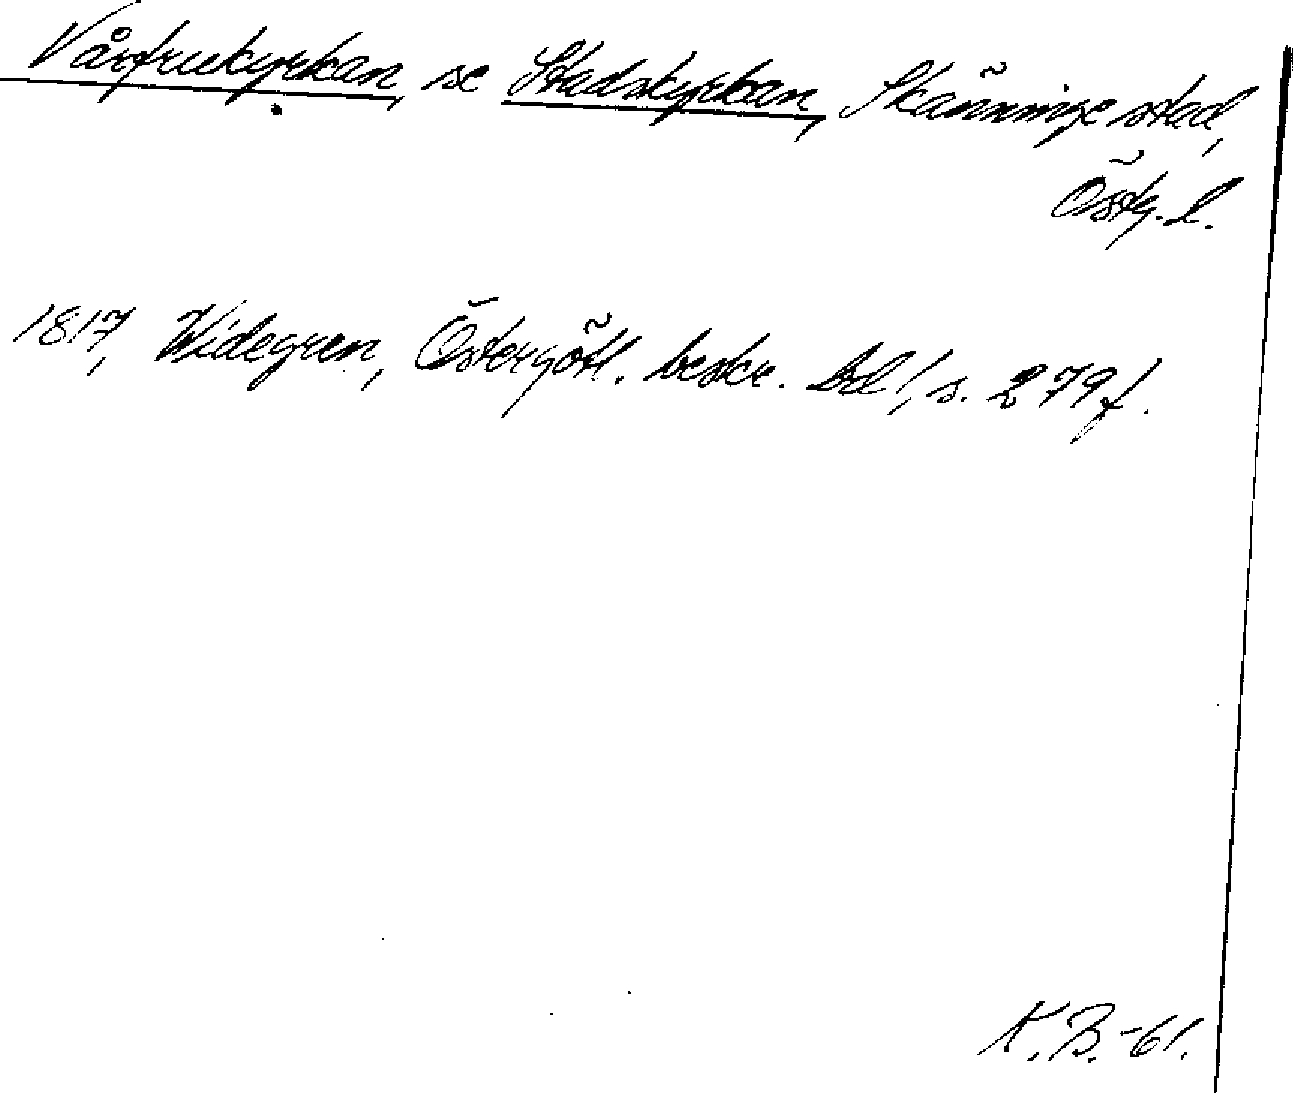 Vårfrukyrkan, se Stadskyrkan, Skänninge stad,
Östg. l.
1817, Widegren, Östergötl. beskr. bd 1, s. 279 f.
K.B.-61.